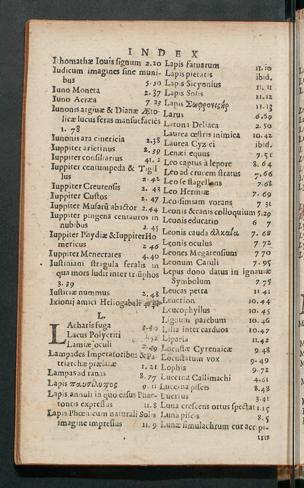 INDEX
Iudicum imagines sine muni-
bus 5.10
Iuno Moneta 2.37
Iuno Acræa 7.23
Iunonis argiuæ & Dianæ Æto-
licæ lucus feras mansuefaciés
1. 78
Iunonis ara cinericia 2.38
Iuppiter arietinus 2.39
Iuppiter consiliarius
Iuppiter centumpeda & Tigil
lus 2.42
Iuppiter Cretensis 2. 43
Iuppiter Custos 2.47
Iuppiter pingens centauros in
nubibus 2.45
Iuppiter Phydiæ & Iuppiter Ho
mericus 2.46
Iuppiter Menecrates 4.40
Iustiniani stragula feralis in
qua mors ludit inter triūphos
3.39
Iustitiæ nummus 2.48
Ixionij amici Heliogabali
L.
Lacharis fuga
Lacus Polycriti
Lamiæ oculi
Lampades Imperatoribus & Pa-
triarchæ prælatæ 1.21
Lampasad ranas 8.77
Lapis 9.11
Lapis annuli in quo casus Phae-
tontis expressus 11.8
Lapis Phœnicum naturali Solis
imagine impressus 11.9
Lapis fatuarum 11.10
Lapis pietatis ibid.
Lapis Sicyonius 11.11
Lapis Solis 11.12
Lapis 11.13
Larus 6.69
Latona Deliaca 2.50
Laurea œstris inimica 10.42
Laurea Cyzici ibid.
Lenæi equus 7.51
Leo captus à lepore 8.64
Leo ad crucem stratus 7.66
Leo se flagellans 7.68
Leo Hermiæ 7.69
Leo simiam vorans 7.31
Leonis & canis colloquium 5.29
Leonis educatio 6 7
Leonis cauda ἀλκαία. 7.68
Leonis oculus 7 72
Leones Megarensium 7 70
Leonum Caruli 7.95
Lepus dono datus in Ignauiæ
Symbolum 7.75
Leucas petra 11.41
Leucrion 10.44
Leucophyllus 10.45
Lignum pacebum 10.46
Lilia inter carduos 10.47
Liparia 11.42
Locustæ Cyrenaicæ 9.48
Locustatum vox 9.49
Lophis 9.72
Lucerna Callimachi 4.61
Lucerna piscis 8.48
Lucrius 3.41
Luna crescens ortus spectat 1.15
Luna piscis 8.5
Lunæ simulachrum cur acc pi-